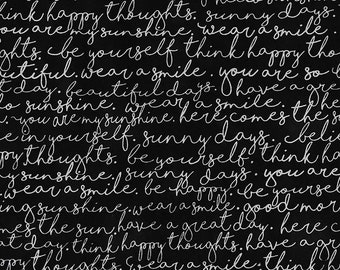 think happy thoughts. sunny days.
you are my sunshine. wear a smile.
ghts. be yourself. think happy tho
utiful. wear a smile. you are so
t day. beautiful days. have a grea
lo sunshine. wear a smile.
e. you are my sunshine. here comes the s
e in yourself. sunny days. belie
py thoughts. be yourself. think h
sunshine. sunny days. you are
wear a smile. be happy. be yourse
y sunshine. wear a smile. good mor
es the sun. have a great day. here c
t day. think happy thoughts. have a gr
hts. wear a smile. think happy